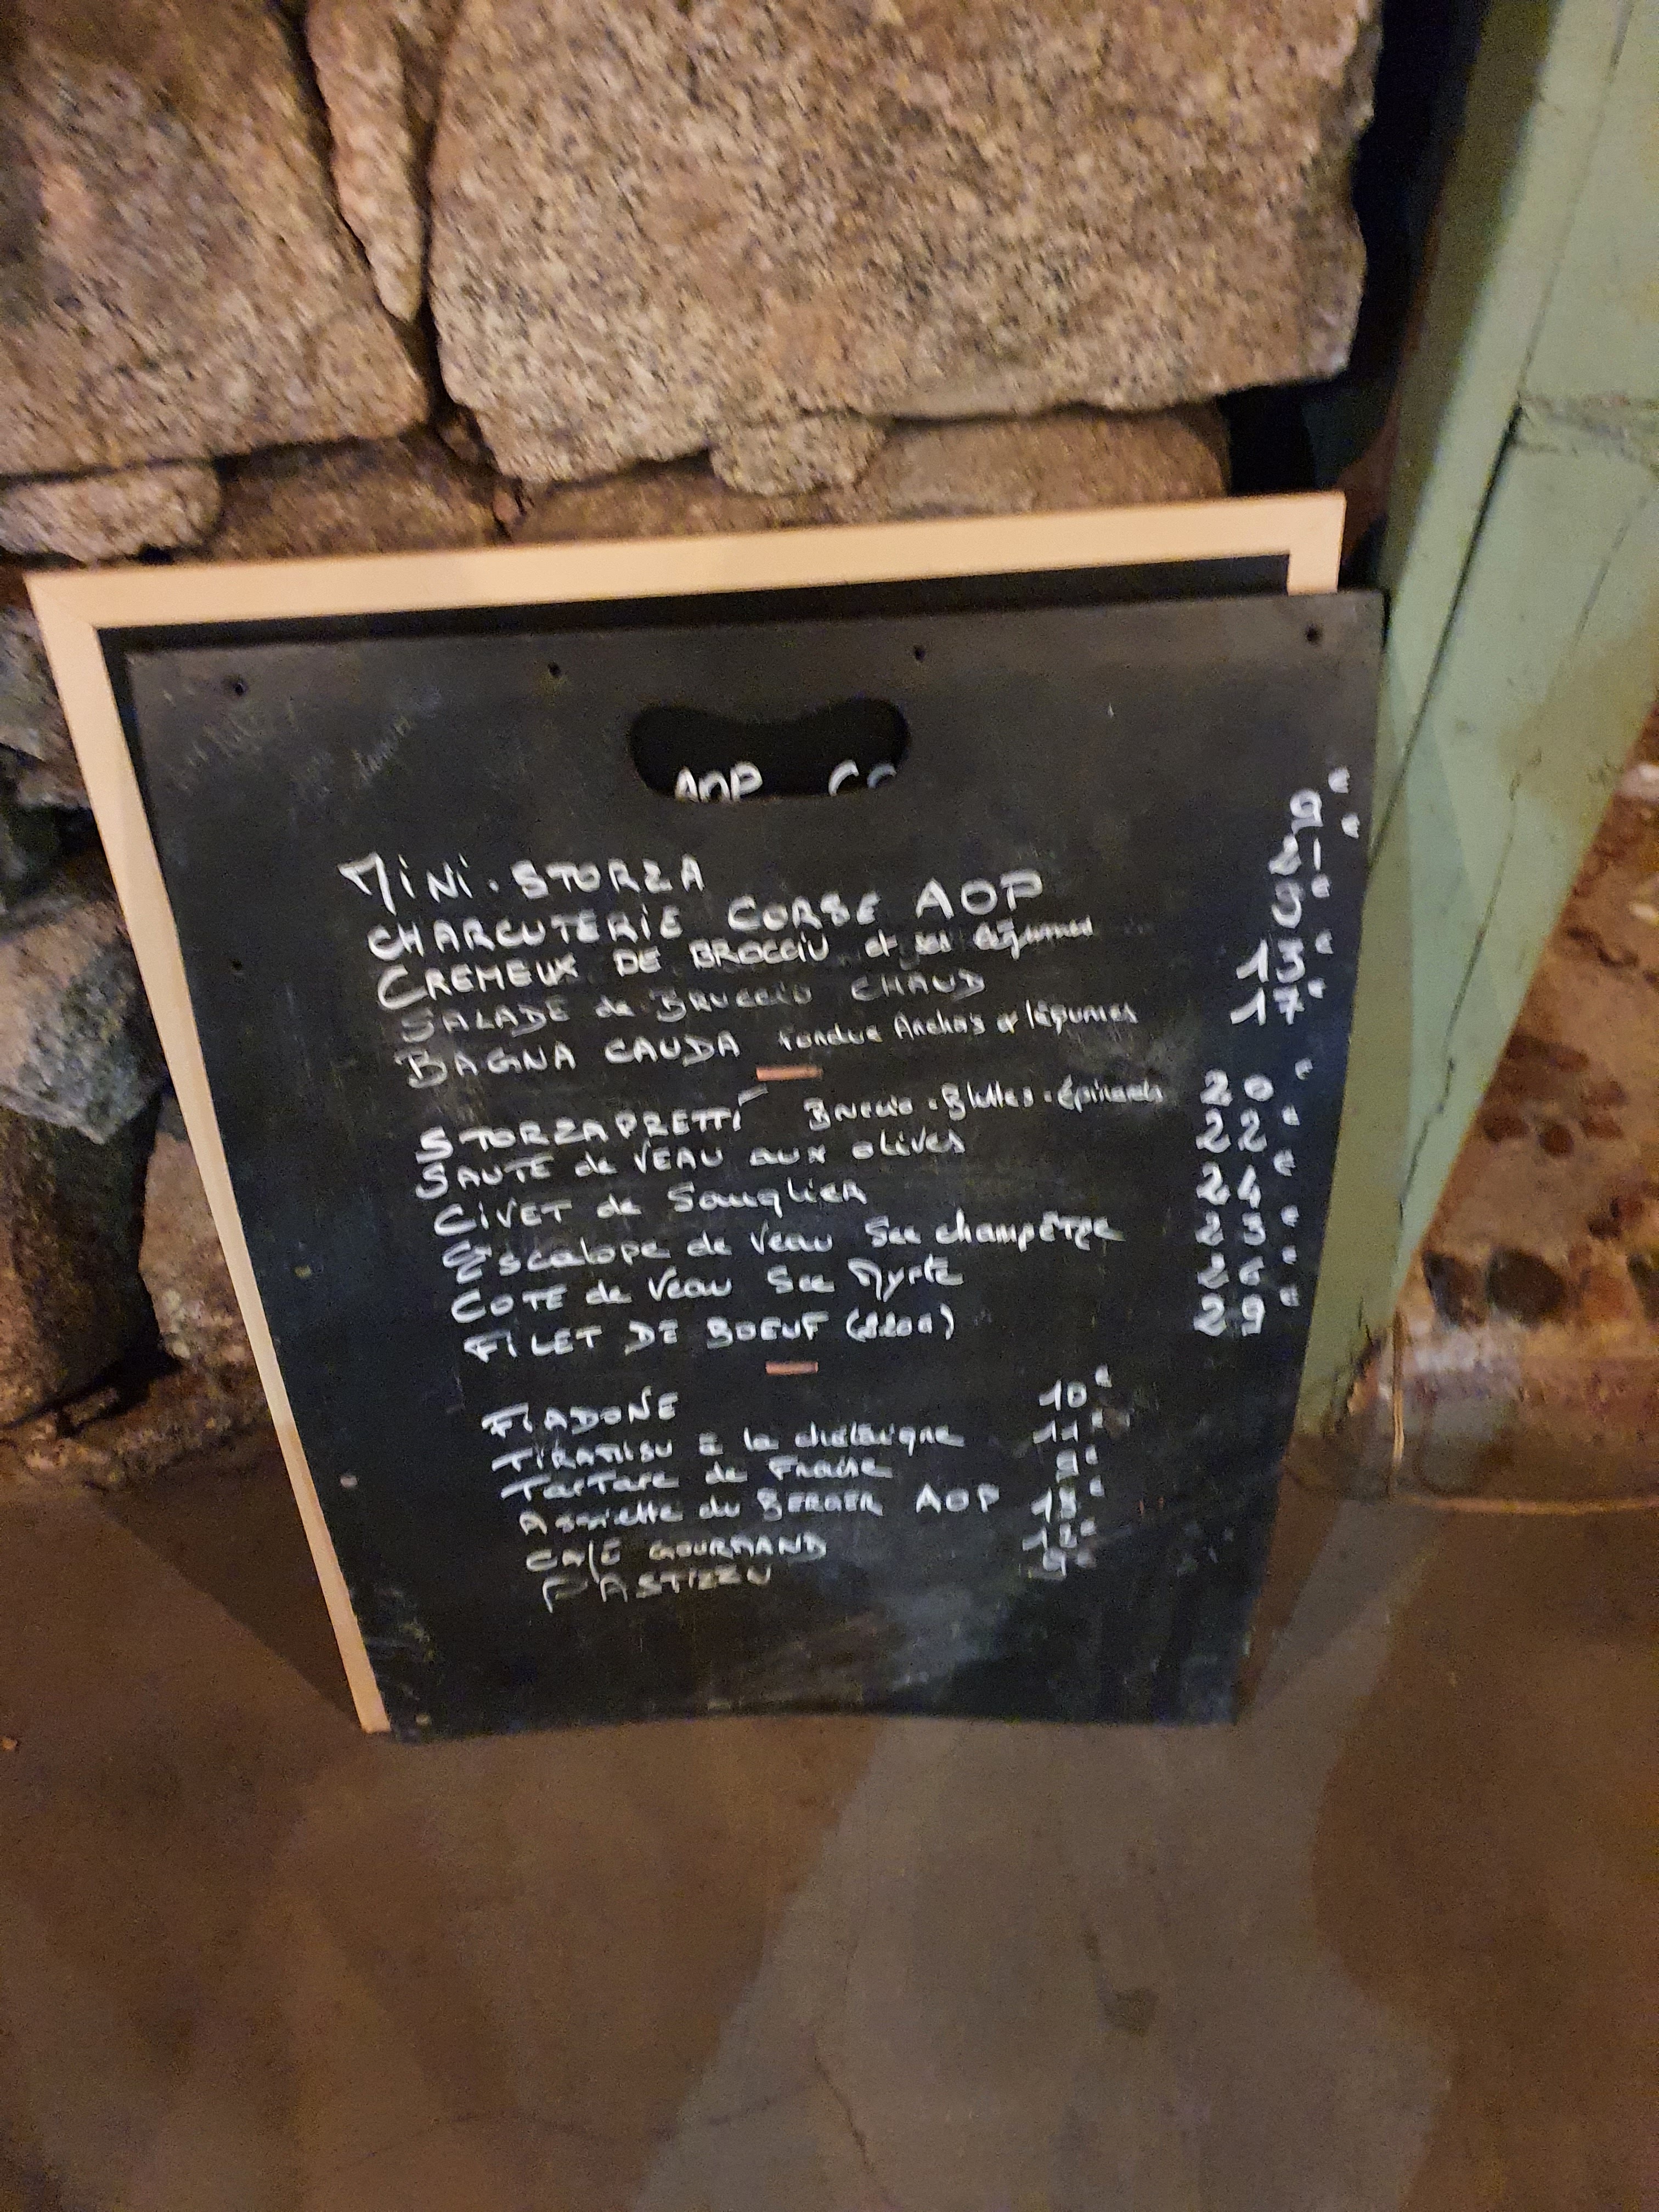 AOP CO
MINI. STORZA 9€
CHARCUTERIE CORSE AOP 21€
CREMEUX DE BROCCIU et ses légumes 9€
SALADE de BRUCCIU CHAUD 13€
BAGNA CAUDA fondue Anchois & légumes 17€
STORZAPRETTI Bruccio. Blettes. épinards 20€
SAUTE de VEAU aux olives 22€
CIVET de Sanglier 24€
Escalope de veau Sce champêtre 23€
COTE de Veau Sce Myrte 26€
FILET DE BOEUF (220G) 29€
FIADONE 10€
TIRAMISU à la châtaigne 11€
Tartare de Fraise 9€
Assiette du BERGER AOP 13€
CAFE GOURMAND 12€
PASTIZZU 9€